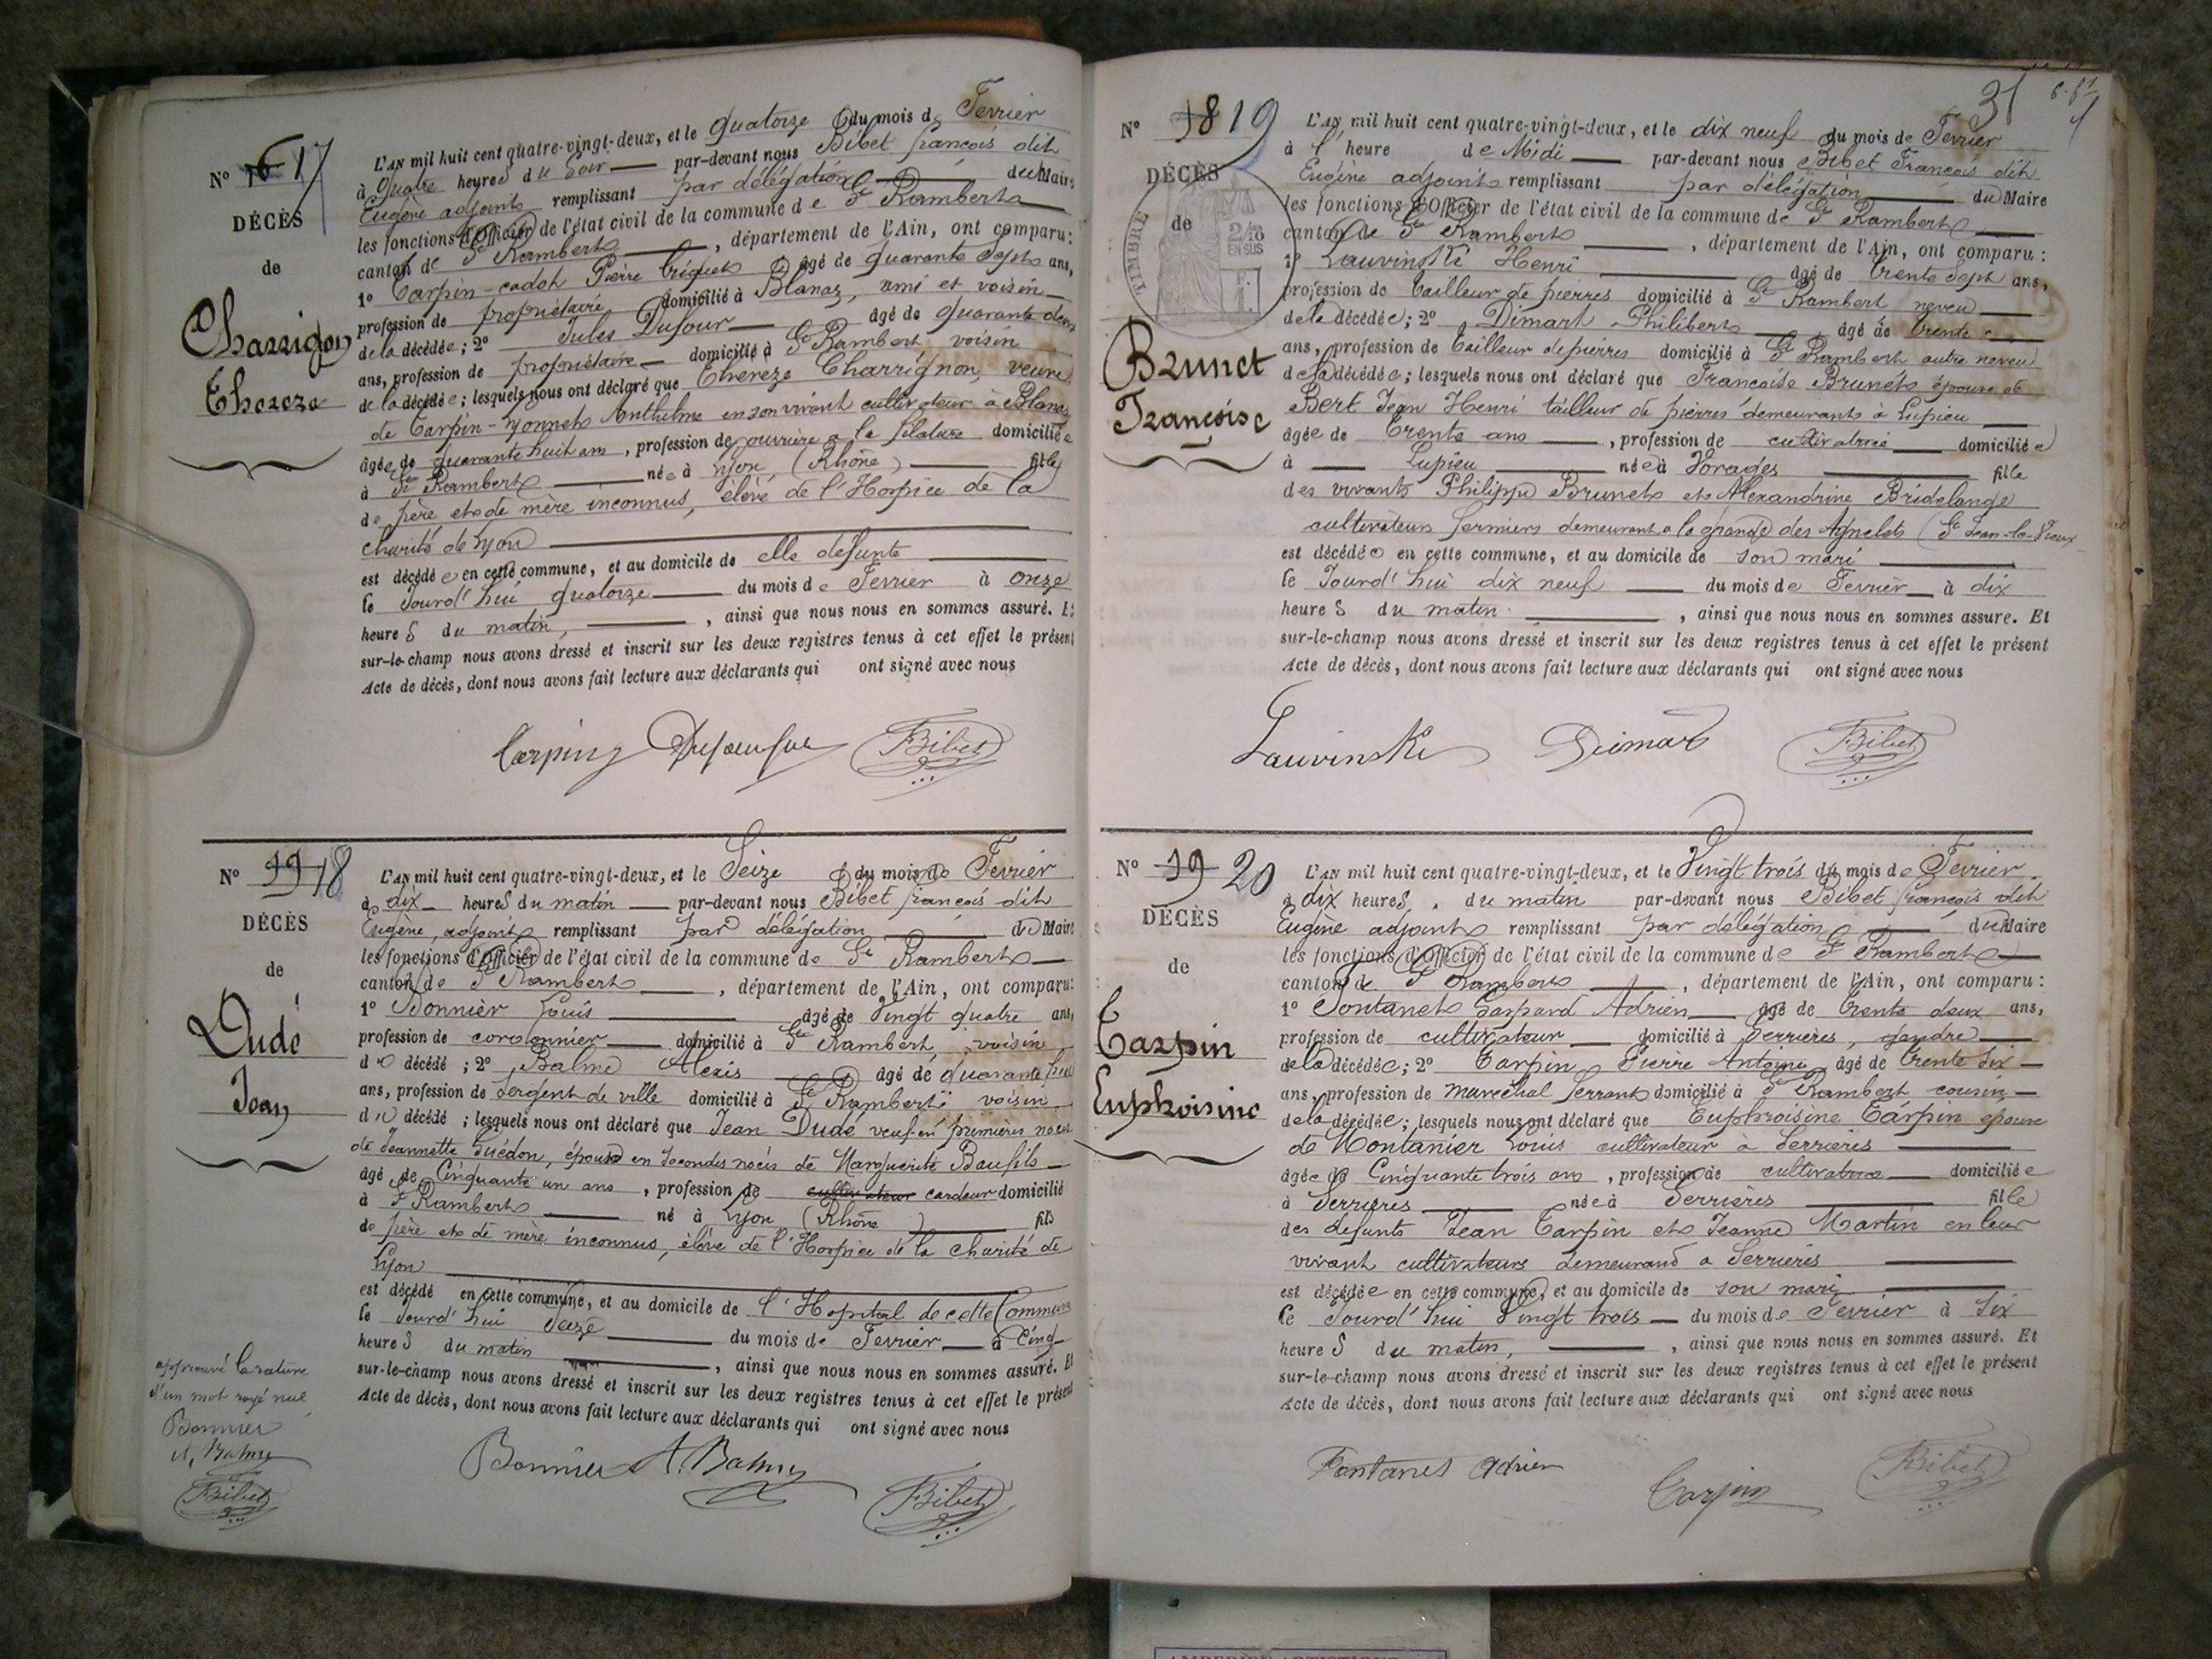 N° 16 17
DÉCÈS
de
Charrignon
Thereze
L'AN mil huit cent quatre-vingt-deux, et le quatorze du mois de Fevrier
à quatre heures du Soir par-devant nous Bibet françois dit
Eugène adjoint remplissant par délégation du Maire
les fonctions d'Officier de l'état civil de la commune de St Rambert
canton de St Rambert, département de l'Ain, ont comparu:
1° Carpin-cadet Pierre âgé de quarante Sept ans,
profession de propriétaire domicilié à Blanaz, ami et voisin
de la décédée; 2° Jules Dufour âgé de quarante deux
ans, profession de propriétaire domicilié à St Rambert voisin
de la décédée; lesquels nous ont déclaré que Thereze Charrignon, veuve
de Carpin-Nonnet Anthelme en son vivant cultivateur à Blanaz
âgée de quarante huit ans, profession de ouvrière a la filature domiciliée
à St Rambert née à Lyon (Rhône) fille
de père et de mère inconnus, élève de l'Hospice de la
charité de Lyon
est décédée en cette commune, et au domicile de elle défunte
le Jourd'hui quatorze du mois de Fevrier à onze
heures du matin, ainsi que nous nous en sommes assuré. Et
sur-le-champ nous avons dressé et inscrit sur les deux registres tenus à cet effet le présent
Acte de décès, dont nous avons fait lecture aux déclarants qui ont signé avec nous
Carpin Dufour FBibet
N° 17 18
DÉCÈS
de
Dudé
Jean
L'AN mil huit cent quatre-vingt-deux, et le Seize du mois de Fevrier
à dix heures du matin par-devant nous Bibet françois dit
Eugène, adjoint remplissant par délégation du Maire
les fonctions d'Officier de l'état civil de la commune de St Rambert
canton de St Rambert, département de l'Ain, ont comparu:
1° Bonnier Louis âgé de Vingt quatre ans,
profession de cordonnier domicilié à St Rambert, voisin
du décédé; 2° Balme Alexis âgé de quarante huit
ans, profession de Sergent de ville domicilié à St Rambert voisin
du décédé; lesquels nous ont déclaré que Jean Dudé veuf en premières noces
de Jeannette Guédon, époux en secondes noces de Marguerite Baufils
âgé de Cinquante un ans, profession de cultivateur cardeur domicilié
à St Rambert né à Lyon (Rhône) fils
de père et de mère inconnus, élève de l'Hospice de la charité de
Lyon
est décédé en cette commune, et au domicile de l'Hopital de cette Commune
le Jourd'hui Seize du mois de Fevrier à Cinq
heures du matin, ainsi que nous nous en sommes assuré. Et
sur-le-champ nous avons dressé et inscrit sur les deux registres tenus à cet effet le présent
Acte de décès, dont nous avons fait lecture aux déclarants qui ont signé avec nous
approuvé la rature
d'un mot rayé nul
Bonnier
A. Balme
FBibet
Bonnier A. Balme FBibet
31
N° 18 19
DÉCÈS
de
TIMBRE
2/10
EN SUS
Brunet
Françoise
L'AN mil huit cent quatre-vingt-deux, et le dix neuf du mois de Fevrier
à l'heure de Midi par-devant nous Bibet François dit
Eugène adjoint remplissant par délégation du Maire
les fonctions d'Officier de l'état civil de la commune de St Rambert
canton de St Rambert, département de l'Ain, ont comparu:
1° Lauvinski Henri âgé de trente Sept ans,
profession de tailleur de pierres domicilié à St Rambert neveu
de la décédée; 2° Dimart Philibert âgé de trente
ans, profession de tailleur de pierres domicilié à St Rambert autre neveu
de la décédée; lesquels nous ont déclaré que Françoise Brunet épouse de
Bert Jean Henri tailleur de pierres demeurant à Lupieu
âgée de trente ans, profession de cultivatrice domiciliée
à Lupieu née à Vorages fille
des vivants Philippe Brunet et Alexandrine Bridelange
cultivateurs fermiers demeurant a la grange des Agnelets (St Jean-le-Vieux
est décédée en cette commune, et au domicile de son mari
le Jourd'hui dix neuf du mois de Fevrier à dix
heures du matin, ainsi que nous nous en sommes assuré. Et
sur-le-champ nous avons dressé et inscrit sur les deux registres tenus à cet effet le présent
Acte de décès, dont nous avons fait lecture aux déclarants qui ont signé avec nous
Lauvinski Dimart FBibet
N° 19 20
DÉCÈS
de
Carpin
Euphroisine
L'AN mil huit cent quatre-vingt-deux, et le Vingt trois du mois de Fevrier
à dix heures du matin par-devant nous Bibet françois dit
Eugène adjoint remplissant par délégation du Maire
les fonctions d'Officier de l'état civil de la commune de St Rambert
canton de St Rambert, département de l'Ain, ont comparu:
1° Fontanet Gaspard Adrien âgé de trente deux ans,
profession de cultivateur domicilié à Serrières, gendre
de la décédée; 2° Carpin Pierre Antoine âgé de trente Six
ans, profession de maréchal ferrant domicilié à St Rambert cousin
de la décédée; lesquels nous ont déclaré que Euphroisine Carpin épouse
de Montanier Louis cultivateur à Serrières
âgée de Cinquante trois ans, profession de cultivatrice domiciliée
à Serrières née à Serrières fille
des defunts Jean Carpin et Jeanne Martin en leur
vivant cultivateurs demeurand a Serrières
est décédée en cette commune, et au domicile de son mari
le Jourd'hui Vingt trois du mois de Fevrier à Six
heures du matin, ainsi que nous nous en sommes assuré. Et
sur-le-champ nous avons dressé et inscrit sur les deux registres tenus à cet effet le présent
Acte de décès, dont nous avons fait lecture aux déclarants qui ont signé avec nous
Fontanet Adrien Carpin FBibet